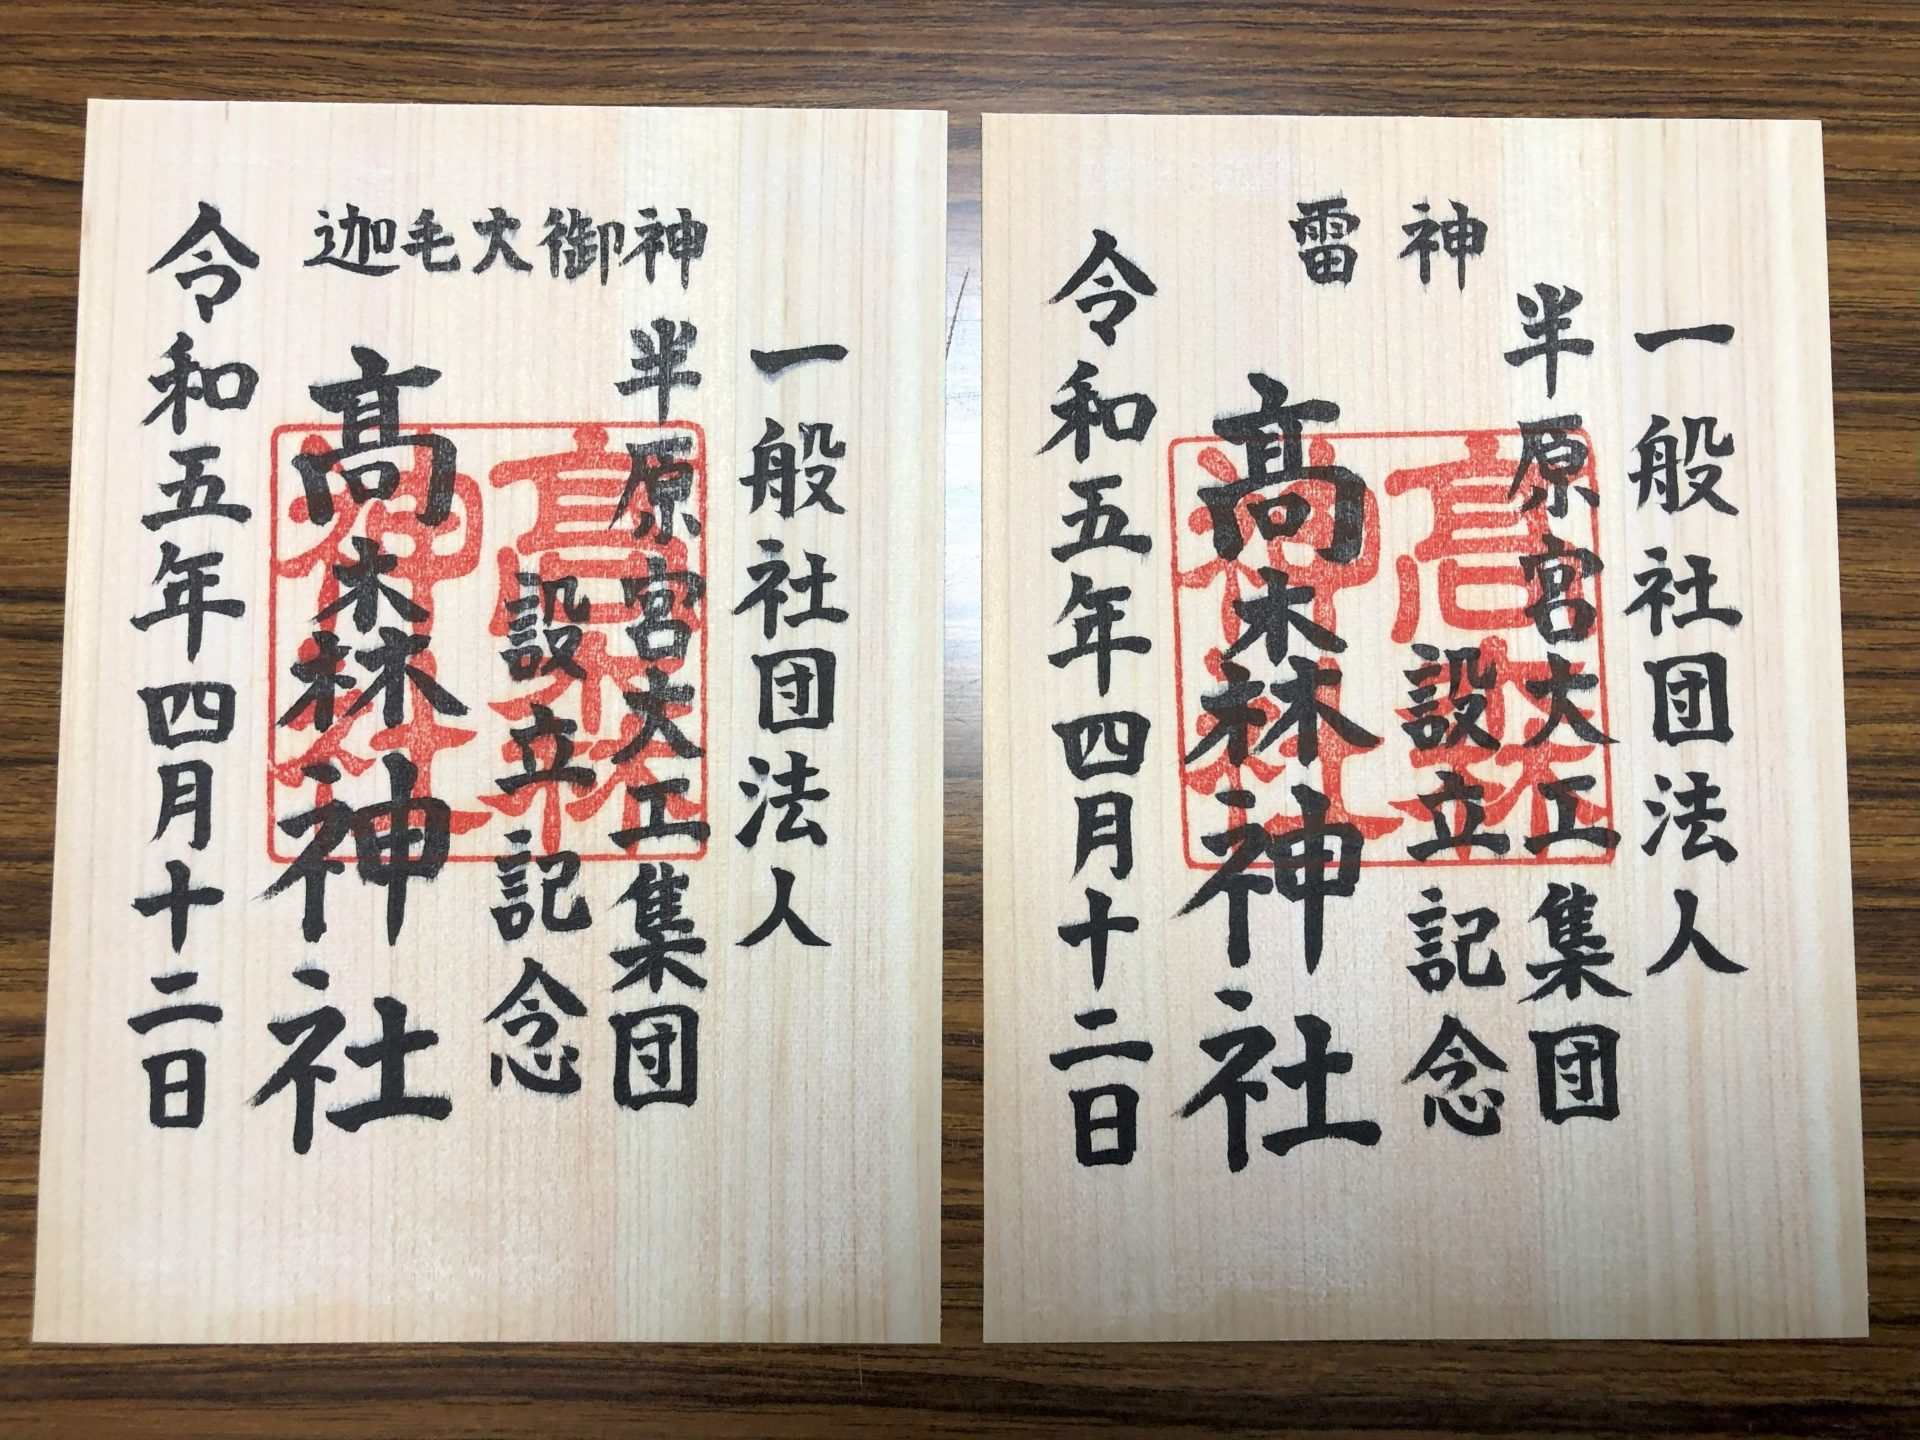 迦毛大御神
一般社団法人
半原宮大工集団
設立記念
髙森神社
令和五年四月十二日
高森
神社
雷神
一般社団法人
半原宮大工集団
設立記念
髙森神社
令和五年四月十二日
高森
神社